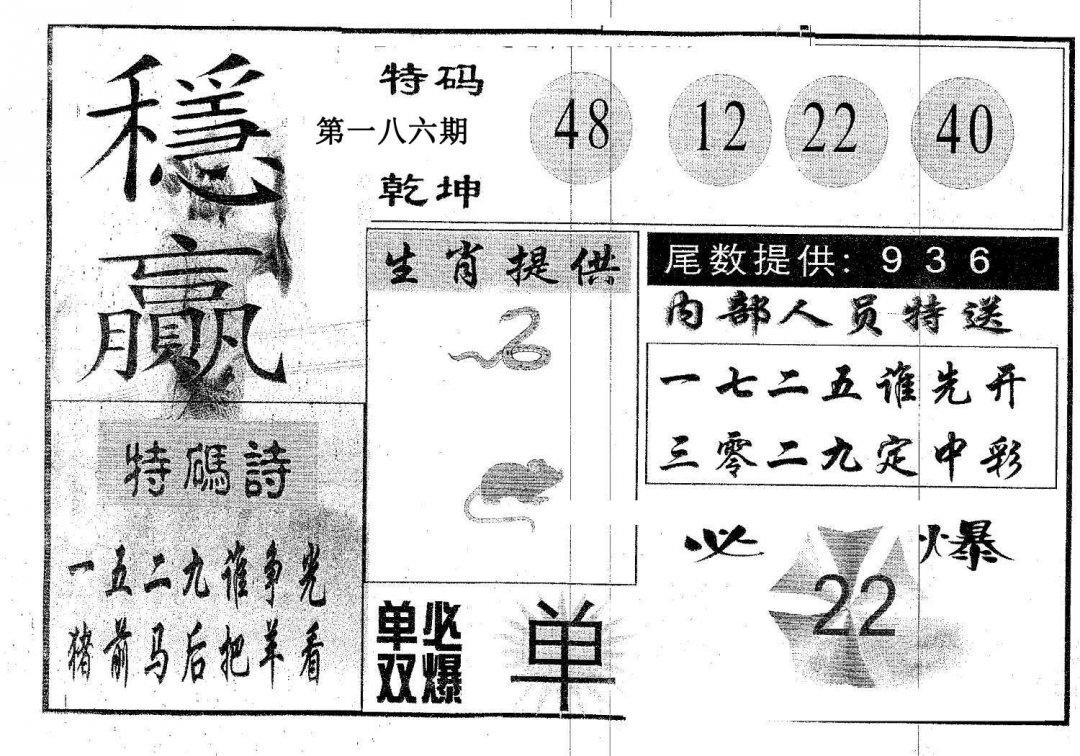 穩贏
特码
第一八六期
乾坤
48 12 22 40
生肖提供
尾数提供：9 3 6
内部人员特送
一七二五谁先开
三零二九定中彩
特碼詩
一五二九谁争光
猪前马后把羊看
单双必爆
单
必爆
22